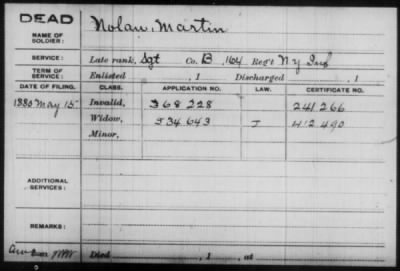 DEAD
NAME OF SOLDIER:
Nolan, Martin
SERVICE:
Late rank, Sgt Co. B, 164 Reg't N.Y. Inf
TERM OF SERVICE:
Enlisted , 1 Discharged , 1
DATE OF FILING. CLASS. APPLICATION NO. LAW. CERTIFICATE NO.
1880 May 15 Invalid, 368228 241266
Widow, 534643 J 412490
Minor,
ADDITIONAL SERVICES:
REMARKS:
Died , 1 , at